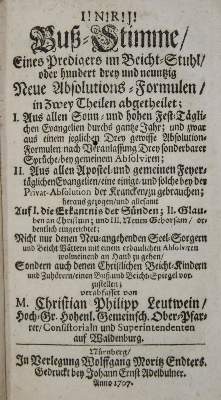 I! N! R! J!
Buß-Stimme/
Eines Predigers im Beicht-Stuhl/
oder hundert drey und neuntzig
Neue Absolutions-Formulen/
in zwey Theilen abgetheilet;
I. Aus allen Sonn- und hohen Fest-Tägli-
chen Evangelien durchs gantze Jahr; und zwar
aus einem jeglichen Drey gewisse Absolution-
Formulen nach Veranlassung Drey sonderbarer
Sprüche/ bey gemeinem Absolviren;
II. Aus allen Apostel- und gemeinen Feyer-
täglichen Evangelien/ eine einige und solche bey der
Privat-Absolution der Krancken/ zu gebrauchen;
heraus gezogen/ und allesamt
Auf I. die Erkantnis der Sünden; II. Glau-
ben an Christum; und III. Neuen Gehorsam/ or-
dentlich eingerichtet;
Nicht nur denen Neu-angehenden Seel-Sorgern
und Beicht-Vättern mit einem erbaulichen Absolviren
wolmeinend an Hand zu gehen/
Sondern auch denen Christlichen Beicht-Kindern
und Zuhörern/ einen Buß- und Beicht-Spiegel vor-
zustellen;
verabfasset von
M. Christian Philipp Leutwein/
Hoch-Gr. Hohenl. Gemeinsch. Ober-Pfar-
rer/ Consistorialn und Superintendenten
auf Waldenburg.
Nürnberg/
In Verlegung Wolffgang Moritz Endters.
Gedruckt bey Johann Ernst Adelbulner.
Anno 1707.